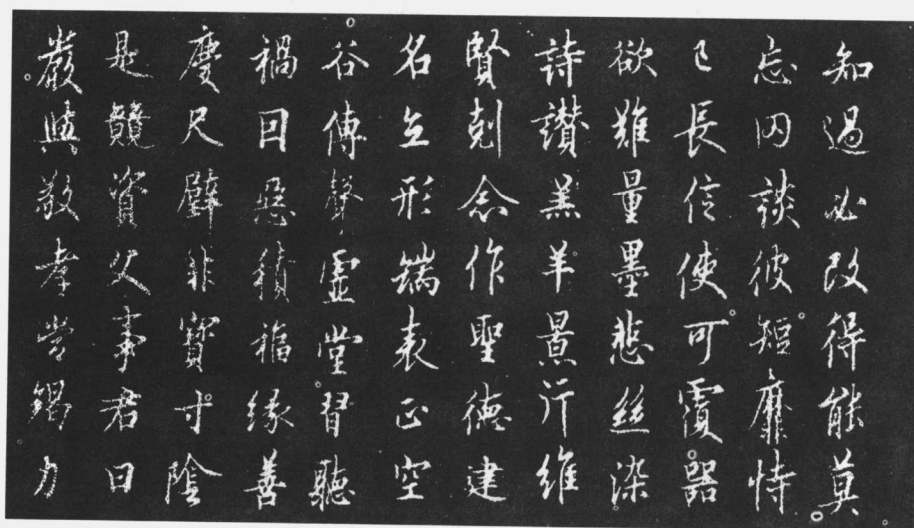 知過必改得能莫
忘罔談彼短靡恃
己長信使可覆器
欲難量墨悲絲染
詩讚羔羊景行維
賢剋念作聖德建
名立形端表正空
谷傳聲虛堂習聽
禍因惡積福緣善
慶尺璧非寶寸陰
是競資父事君曰
嚴與敬孝當竭力